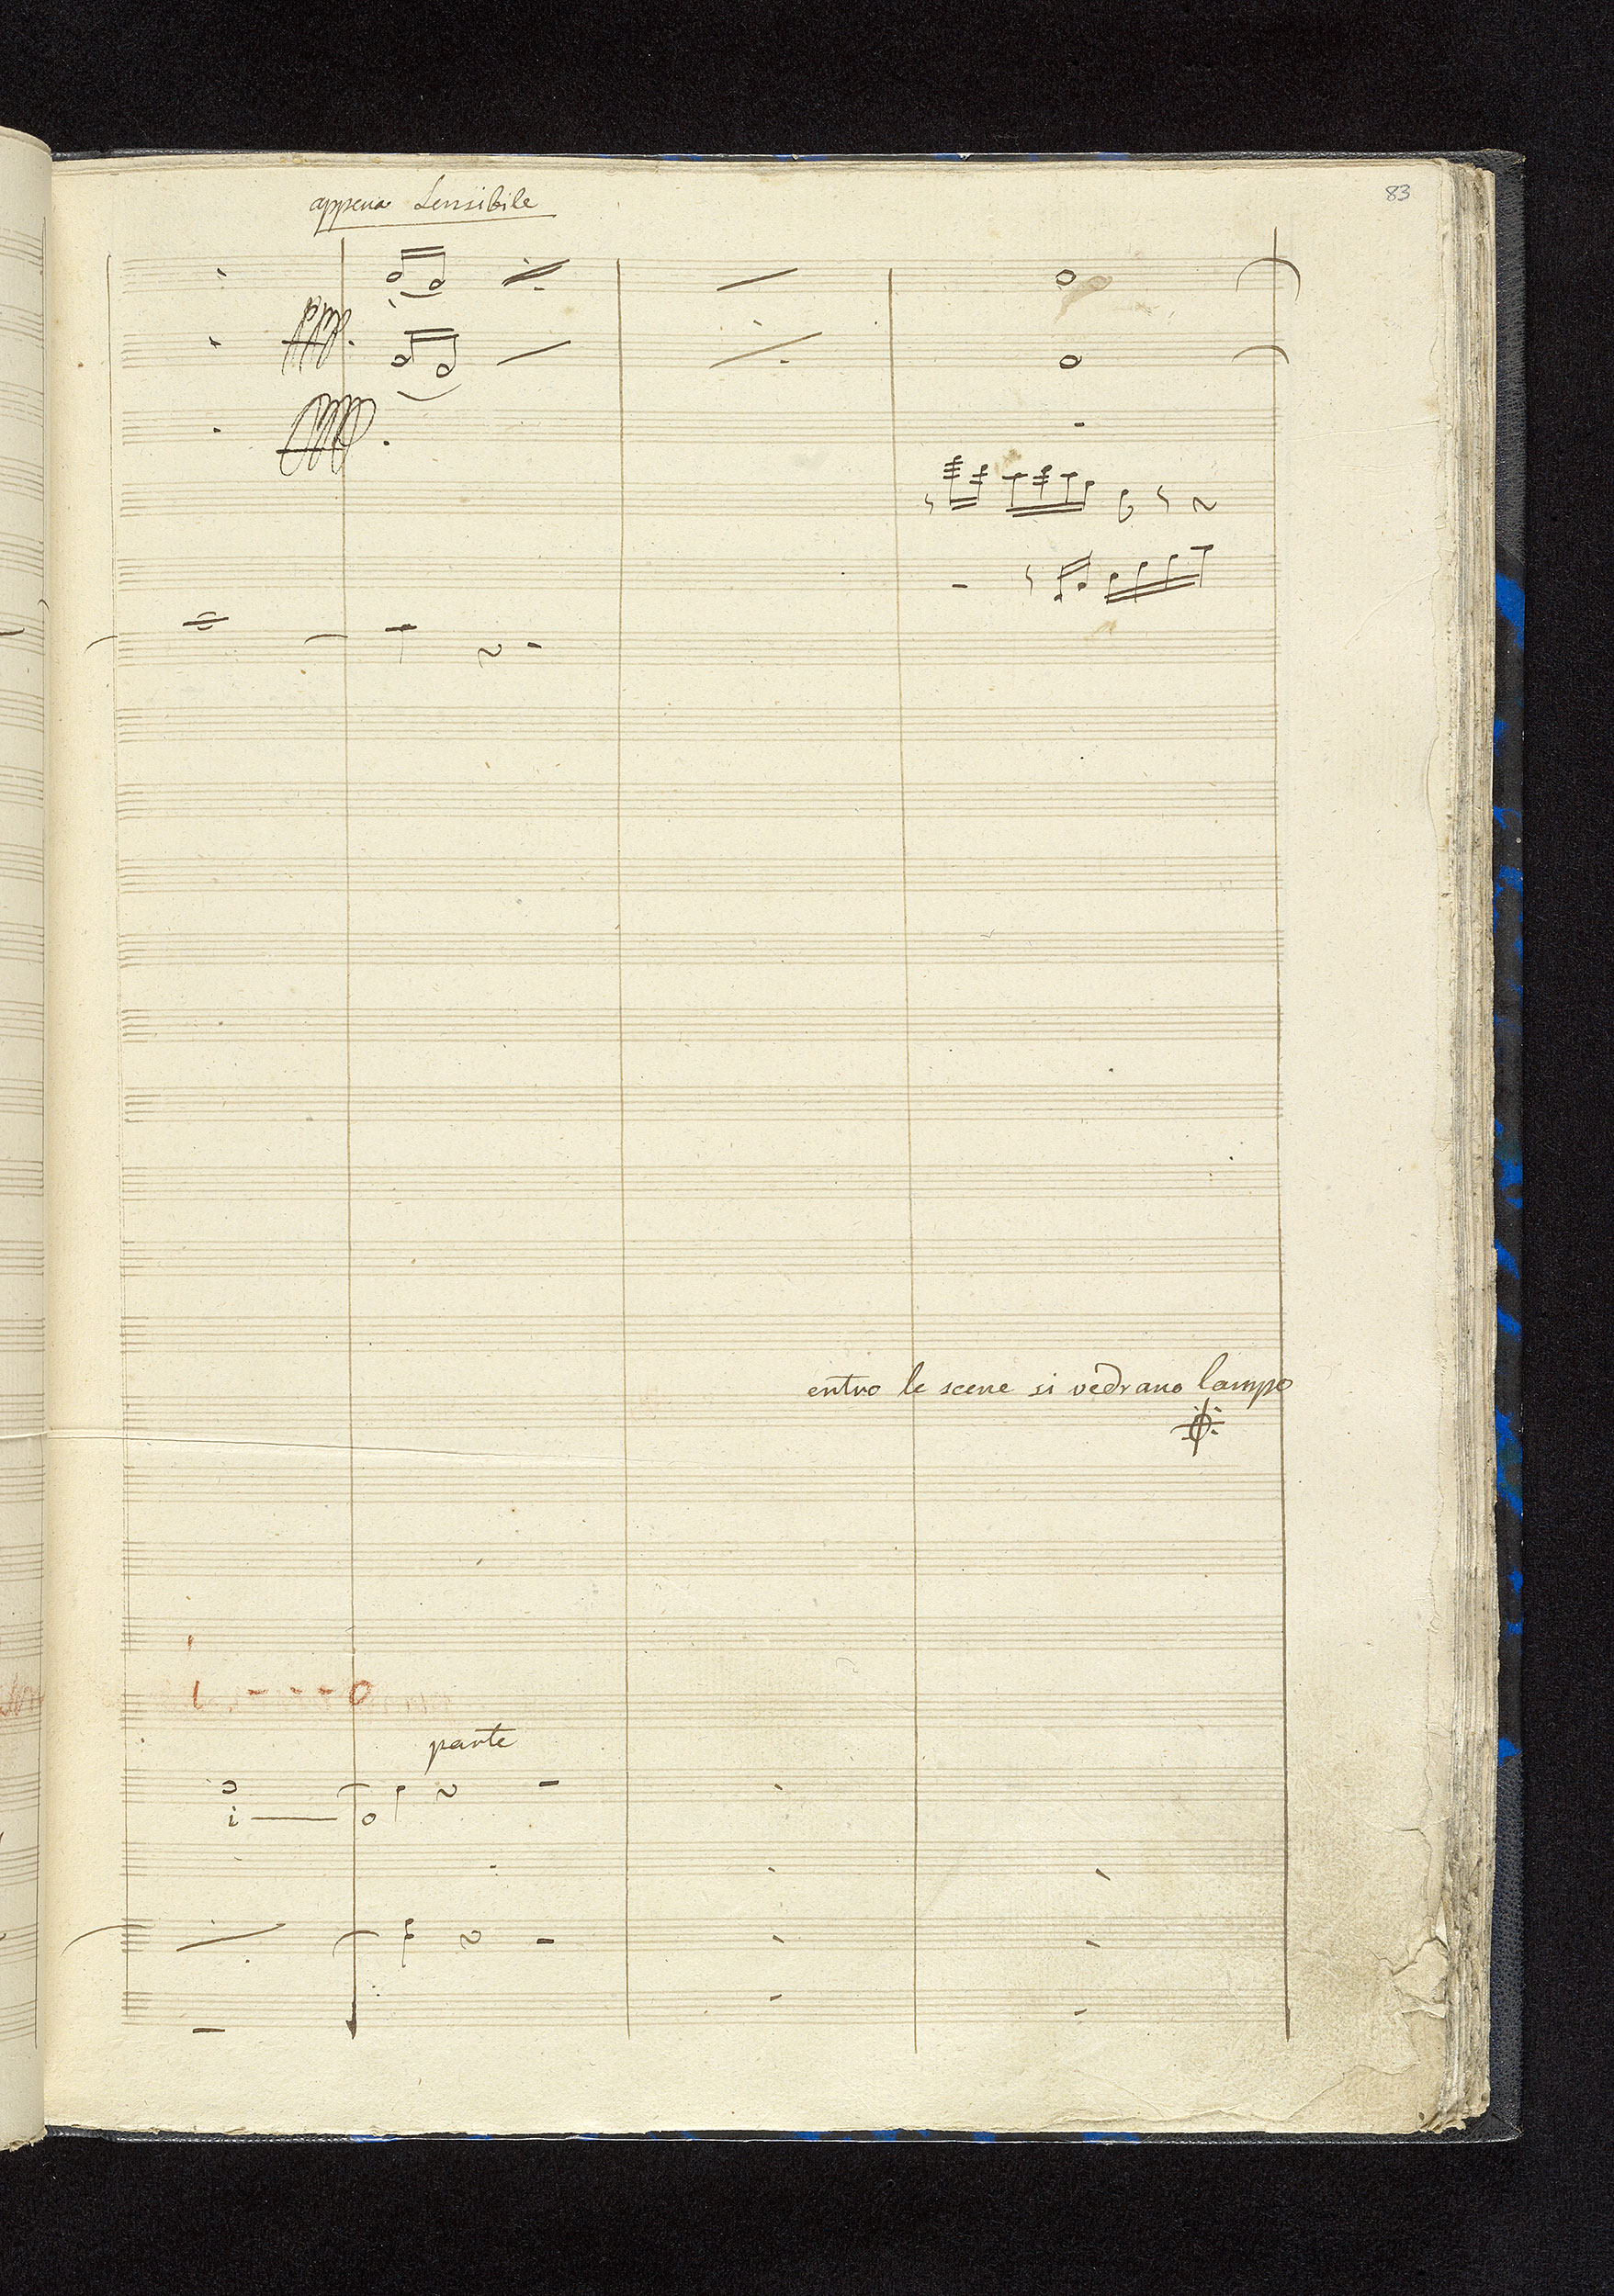 appena Sensibile
83
entro le scene si vedrano lampo
parte